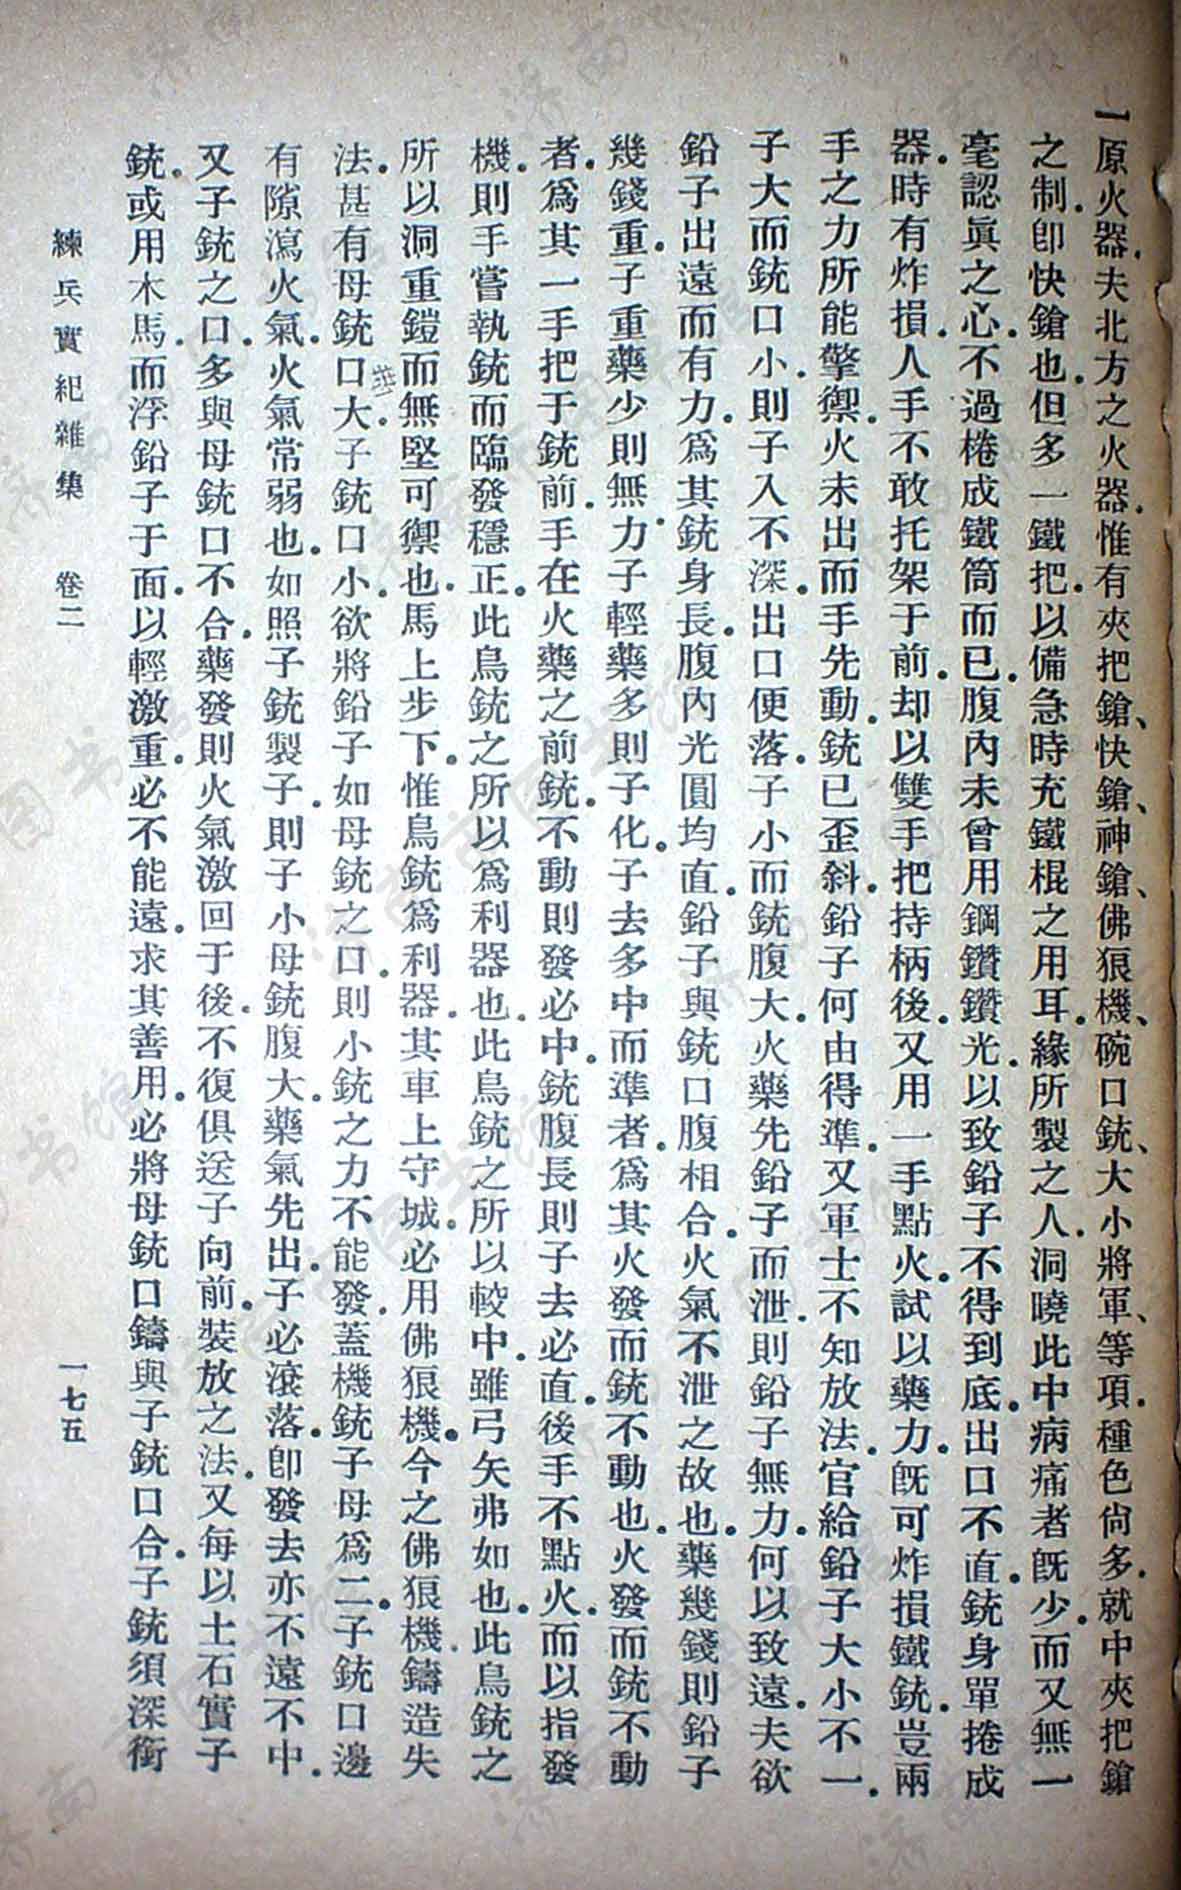 一原火器.夫北方之火器.惟有夾把鎗、快鎗、神鎗、佛狠機、碗口銃、大小將軍、等項.種色尙多.就中夾把鎗
之制.卽快鎗也.但多一鐵把.以備急時充鐵棍之用耳.緣所製之人.洞曉此中病痛者旣少.而又無一
毫認眞之心.不過棬成鐵筒而已.腹內未曾用鋼鑽鑽光.以致鉛子不得到底.出口不直.銃身單捲成
器.時有炸損.人手不敢托架于前.却以雙手把持柄後.又用一手點火.試以藥力.旣可炸損鐵銃.豈兩
手之力所能擎禦.火未出而手先動.銃已歪斜.鉛子何由得準.又軍士不知放法.官給鉛子大小不一.
子大而銃口小.則子入不深.出口便落.子小而銃腹大.火藥先鉛子而泄.則鉛子無力.何以致遠.夫欲
鉛子出遠而有力.爲其銃身長.腹內光圓均直.鉛子與銃口腹相合.火氣不泄之故也.藥幾錢則鉛子
幾錢重.子重藥少則無力.子輕藥多則子化.子去多中而準者.爲其火發而銃不動也.火發而銃不動
者.爲其一手把于銃前.手在火藥之前.銃不動則發必中.銃腹長則子去必直.後手不點火.而以指發
機.則手嘗執銃而臨發穩正.此鳥銃之所以爲利器也.此鳥銃之所以較中.雖弓矢弗如也.此鳥銃之
所以洞重鎧而無堅可禦也.馬上步下.惟鳥銃爲利器.其車上守城.必用佛狠機.今之佛狠機.鑄造失
法.甚有母銃口大.子銃口小.欲將鉛子如母銃之口.則小銃之力不能發.蓋機銃子母爲二.子銃口邊
有隙瀉火氣.火氣常弱也.如照子銃製子.則子小母銃腹大.藥氣先出.子必滾落.卽發去亦不遠不中.
又子銃之口.多與母銃口不合.藥發則火氣激回于後.不復俱送子向前.裝放之法.又每以土石實子
銃.或用木馬.而浮鉛子于面.以輕激重.必不能遠.求其善用.必將母銃口鑄與子銃口合.子銃須深銜
練兵實紀雜集　卷二　一七五